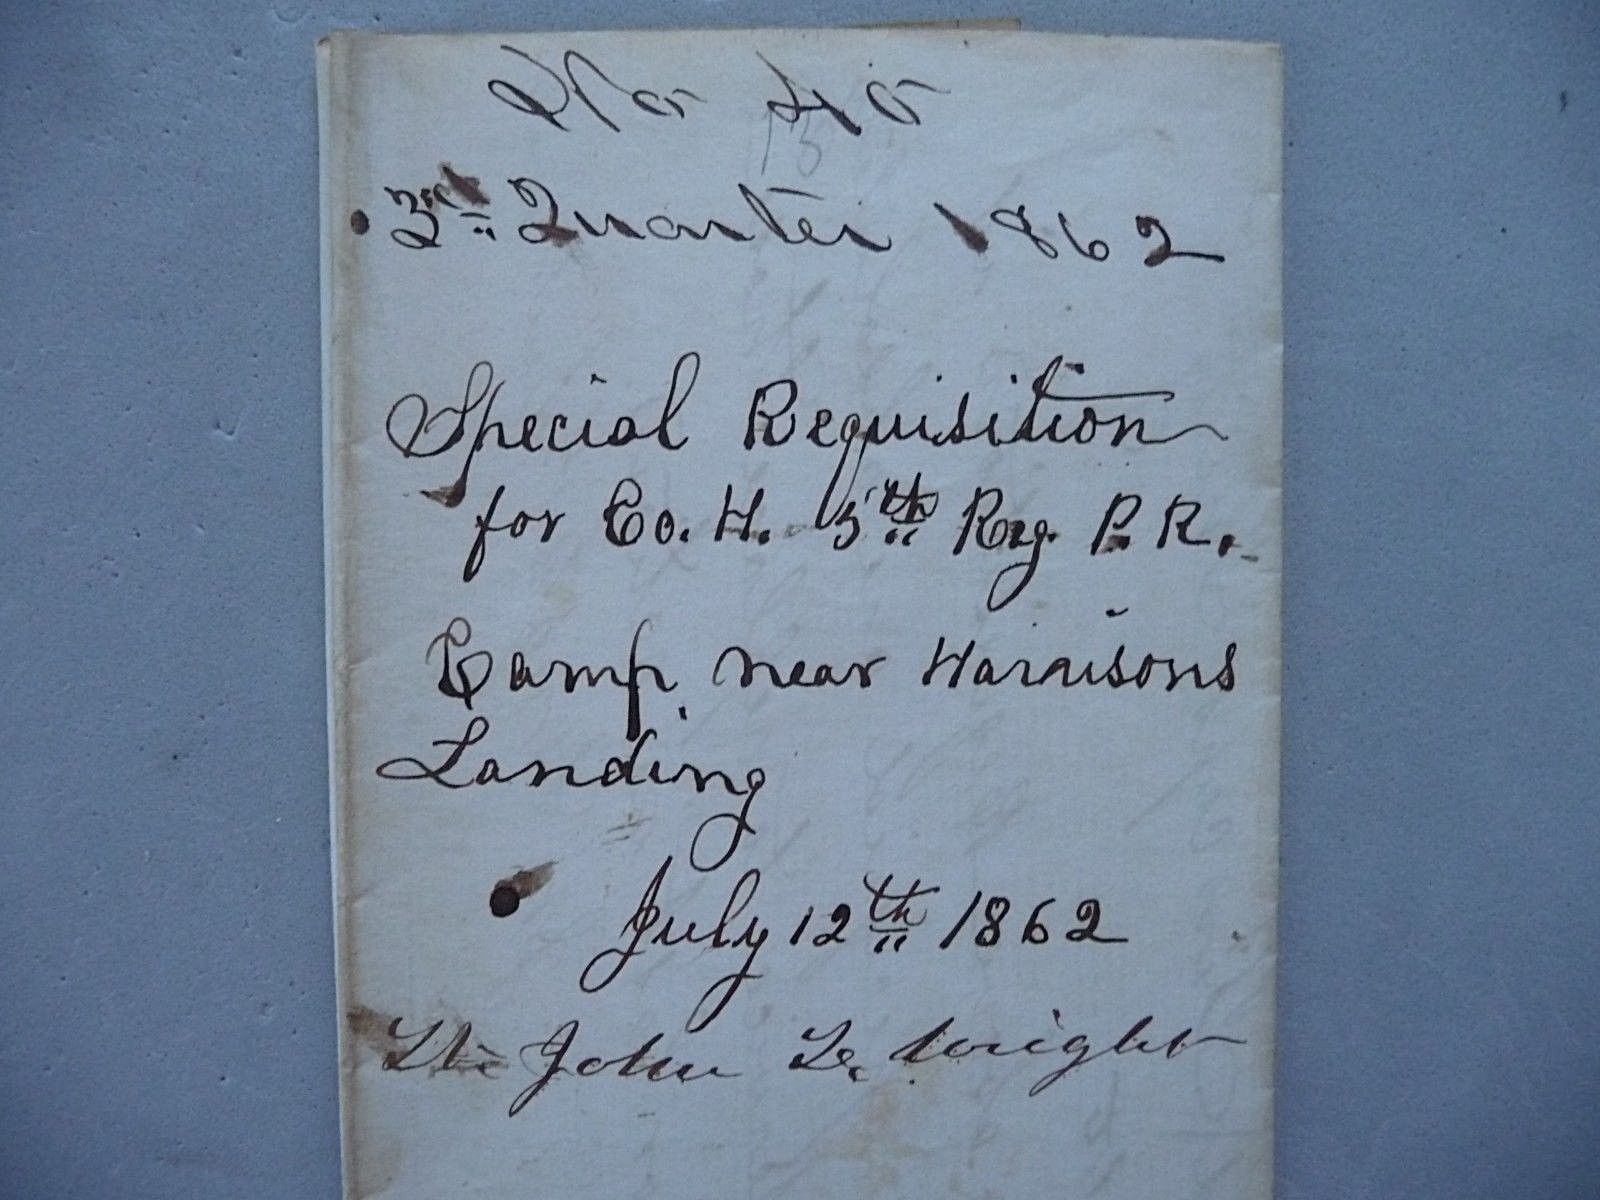 No 40
15
3rd Quarter 1862
Special Requisition
for Co. H. 5th Reg. P. R.
Camp near Harrisons
Landing
July 12th 1862
Lt. John Wright